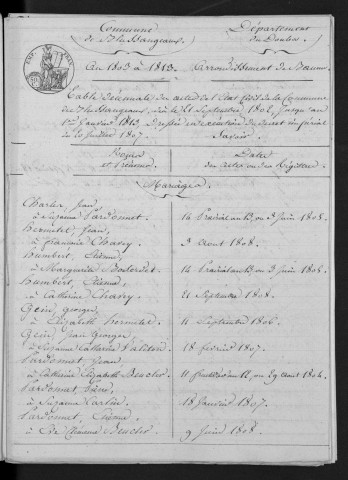 Commune
Département
du Doubs
An 1803 à 1813.
Arrondissement de Baume
Table Décennale des actes de l'Etat Civil de la Commune
1er Janvier 1813, dressée en exécution du décret impérial
du 20 Juillet 1807.
Savoir
Noms
et Prénoms
Dates
des actes ou des Registres
Mariages
Charles, Jean
à Suzanne Pardonnet
14 Prairial an 13, ou 3 Juin 1805.
à françoise Chavey
3 Aout 1808.
humbert, Etienne
à Marguerite
14 Prairial an 13 ou 3 Juin 1805.
humbert, Etienne
à Catherine Chavey
21 Septembre 1808.
georges
à Elizabeth
11 Septembre 1806.
Jean Georges
à Suzanne Catherine
18 février 1807.
Pardonnet, Jean
à Catherine Elizabeth Beucler
11 fructidor an 12, ou 29 Aout 1804.
Pardonnet, Pierre
à Suzanne Cartier
18 Janvier 1807.
Pardonnet, Etienne
à Clémence Beucler
9 Juin 1808.